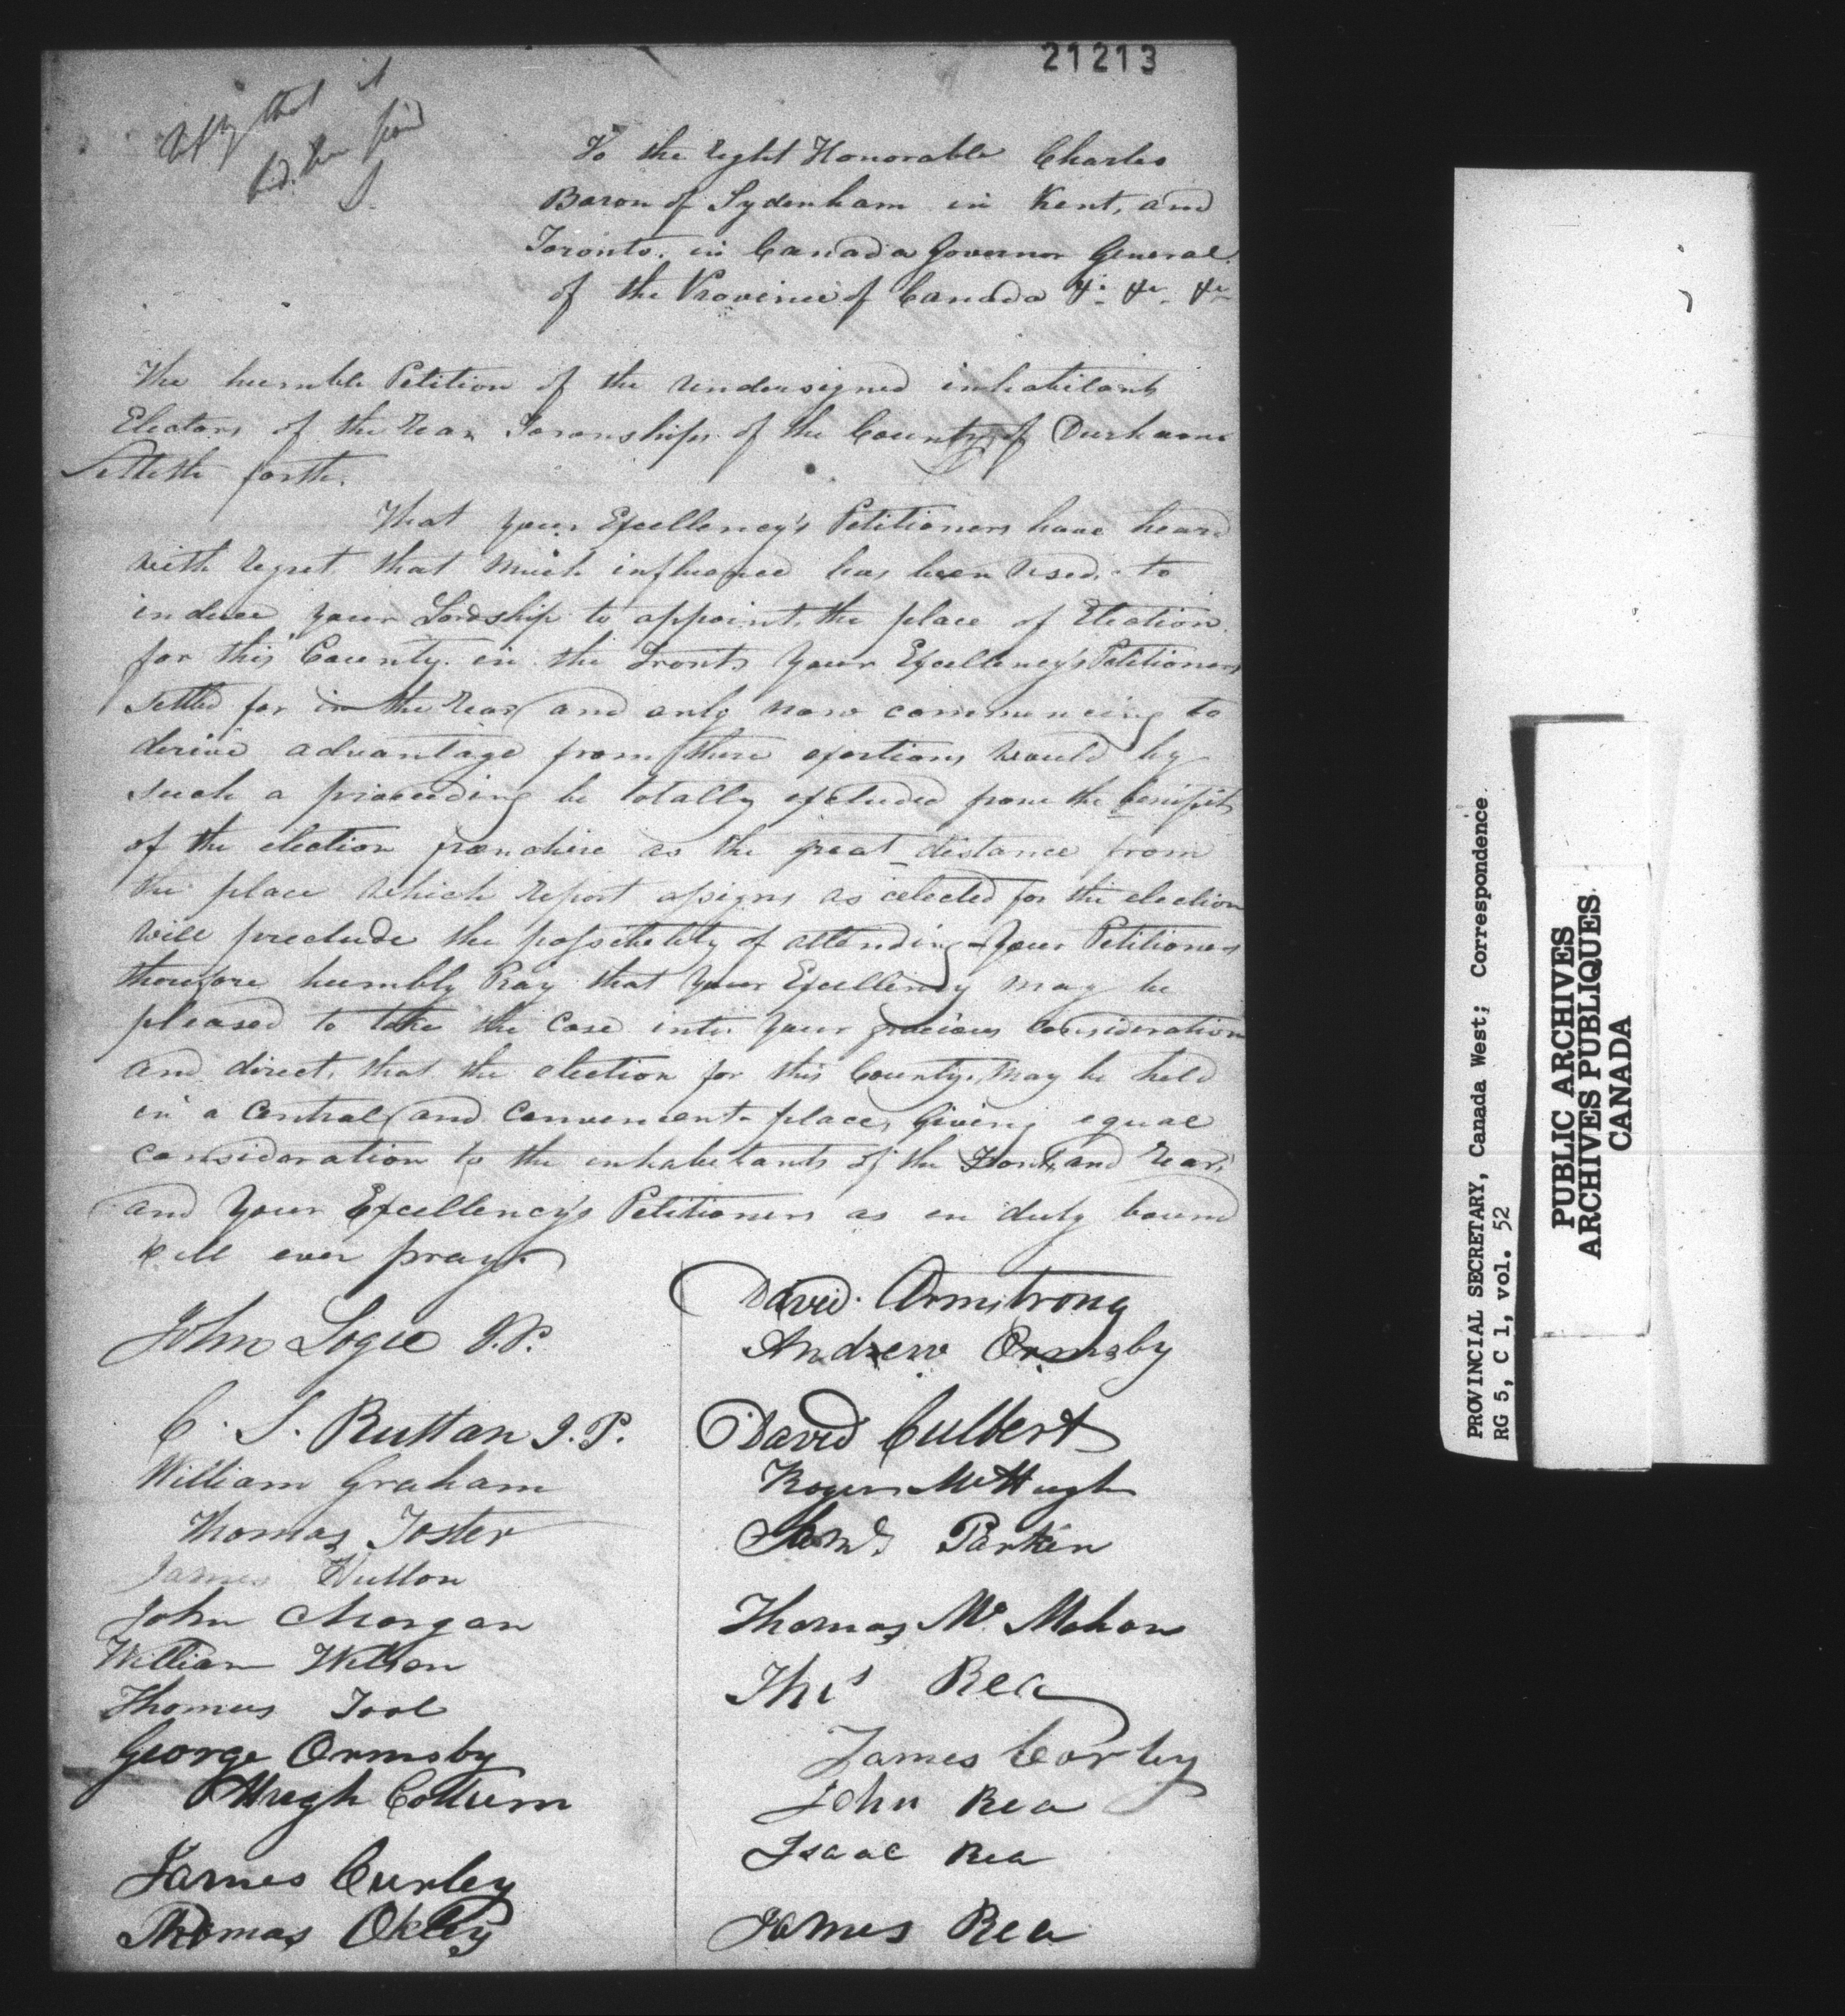 21213
that it
To the right Honorable Charles
Baron of Sydenham in Kent, and
Toronto. in Canada Governor General.
of the Province of Canada &c &c &c
The humble Petition of the undersigned inhabitants
Electors of the rear Townships of the County of Durham
Setteth forth.
That your Excellency's Petitioners have heard
with regret that much influence has been used, to
induce your Lordship to appoint, the place of Election
for this County. in the Front, Your Excellency's Petitioners
settled far in the rear and only now commencing to
derive advantage from there exertions would by
such a proceeding be totally excluded from the benifits
of the election franchise as the great distance from
the place which report assigns as celected for the election
will preclude the possibility of attending - Your Petitioners
therefore humbly Pray that Your Excellency may be
pleased to take the Case into Your gracious Consideration
and direct, that the election for this County, may be held
in a Central and Convenient place, Giving equal
consideration to the inhabitants of the Front, and Rear,
and Your Excellency's Petitioners as in duty bound
will ever pray.
John Logie J.P.
C. S. Ruttan J.P.
William Graham
Thomas Foster
James Hutton
John Morgan
William Wilson
Thomas Tool
George Ormsby
Hugh Collum
James Curley
Thomas
David Armstrong
Andrew Ormsby
David Culbert
Roger McHugh
Saml. Parkin
Thomas Mc Mahon
Thos Rea
James Corley
John Rea
Isaac Rea
James Rea
PROVINCIAL SECRETARY, Canada West; Correspondence
RG 5, C 1, vol. 52
PUBLIC ARCHIVES
ARCHIVES PUBLIQUES
CANADA